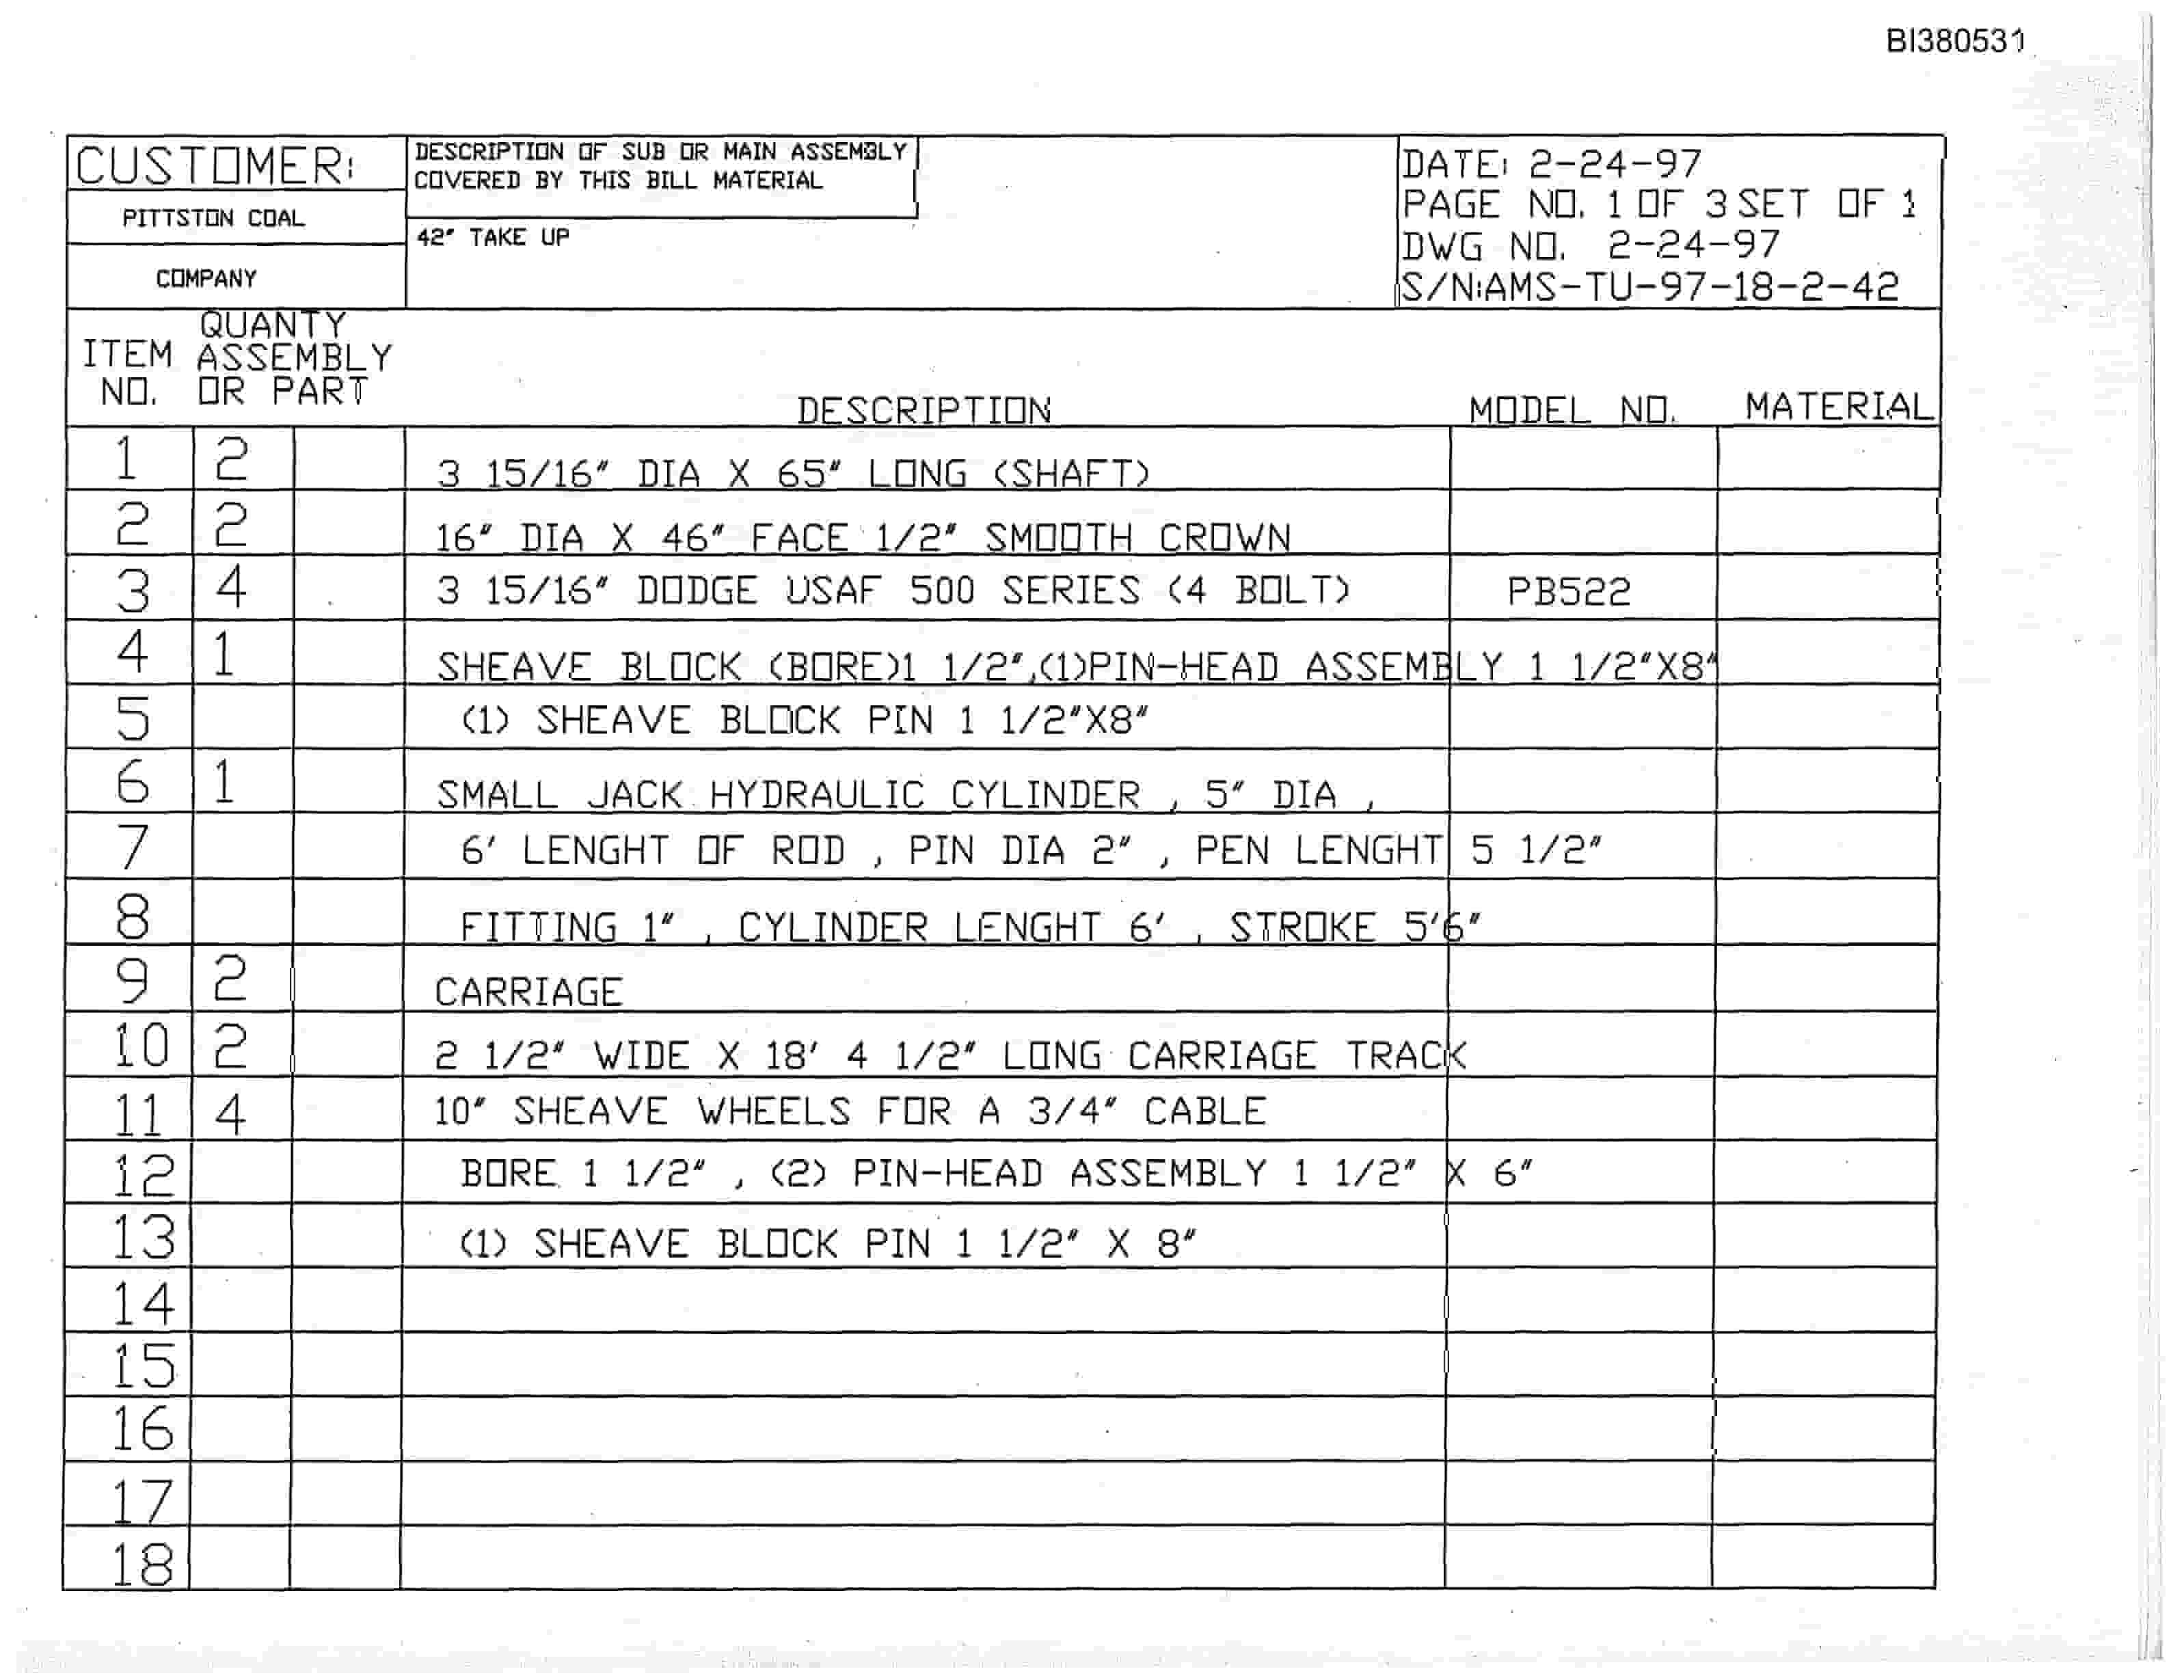 BI380531
CUSTOMER:
PITTSTON COAL
COMPANY
DESCRIPTION OF SUB OR MAIN ASSEMBLY
COVERED BY THIS BILL MATERIAL
42" TAKE UP
DATE: 2-24-97
PAGE NO. 1 OF 3 SET OF 1
DWG NO. 2-24-97
S/N:AMS-TU-97-18-2-42
ITEM NO.
QUANTY ASSEMBLY OR PART
DESCRIPTION
MODEL NO.
MATERIAL
1 2 3 15/16" DIA X 65" LONG (SHAFT)
2 2 16" DIA X 46" FACE 1/2" SMOOTH CROWN
3 4 3 15/16" DODGE USAF 500 SERIES (4 BOLT) PB522
4 1 SHEAVE BLOCK (BORE)1 1/2",(1)PIN-HEAD ASSEMBLY 1 1/2"X8"
5 (1) SHEAVE BLOCK PIN 1 1/2"X8"
6 1 SMALL JACK HYDRAULIC CYLINDER , 5" DIA ,
7 6' LENGHT OF ROD , PIN DIA 2" , PEN LENGHT 5 1/2"
8 FITTING 1" , CYLINDER LENGHT 6' , STROKE 5'6"
9 2 CARRIAGE
10 2 2 1/2" WIDE X 18' 4 1/2" LONG CARRIAGE TRACK
11 4 10" SHEAVE WHEELS FOR A 3/4" CABLE
12 BORE 1 1/2" , (2) PIN-HEAD ASSEMBLY 1 1/2" X 6"
13 (1) SHEAVE BLOCK PIN 1 1/2" X 8"
14
15
16
17
18